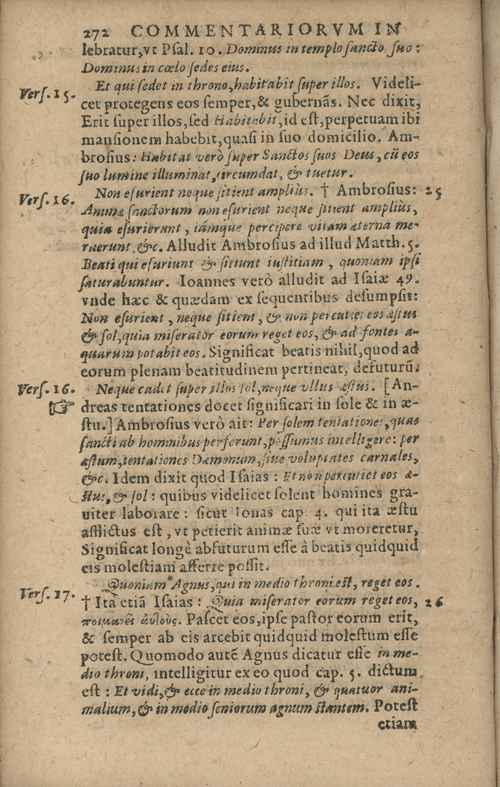 272 COMMENTARIORVM IN
lebratur, vt Psal. 10. Dominus in templo sancto suo:
Dominus in cœlo sedes eius.
Vers. 15. Et qui sedet in throno, habitabit super illos. Videli-
cet protegens eos semper, & gubernãs. Nec dixit,
Erit super illos, sed Habitabit, id est, perpetuam ibi
mansionem habebit, quasi in suo domicilio. Am-
brosius: Habitat verò super Sanctos suos Deus, cũ eos
suo lumine illuminat, circumdat, & tuetur.
Vers. 16. Non esurient neque sitient amplius. † Ambrosius: 25
Animæ sanctorum non esurient neque sitient amplius,
quia esurierunt, iamque percipere vitam æterna me-
ruerunt, &c. Alludit Ambrosius ad illud Matth. 5.
Beati qui esuriunt & sitiunt iustitiam, quoniam ipsi
saturabuntur. Ioannes verò alludit ad Isaiæ 49.
vnde hæc & quædam ex sequentibus desumpsit:
Non esurient, neque sitient, & non percutiet eos æstus
& sol, quia miserator eorum reget eos, & ad fontes a-
quarum potabit eos. Significat beatis nihil, quod ad
eorum plenam beatitudinem pertineat, defuturũ.
Vers. 16. Neque cadet super illos sol, neque vllus æstus. [An-
☞ dreas tentationes docet significari in sole & in æ-
stu.] Ambrosius verò ait: Per solem tentationes, quas
sancti ab hominibus perferunt, possumus intelligere: per
æstum, tentationes Dæmonum, siue voluptates carnales,
&c. Idem dixit quod Isaias: Et non percutiet eos æ-
stus, & sol: quibus videlicet solent homines gra-
uiter laborare: sicut Ionas cap. 4. qui ita æstu
afflictus est, vt petierit animæ suæ vt moreretur,
Significat longè absuturum esse à beatis quidquid
eis molestiam afferre possit.
Vers. 17. Quoniam Agnus, qui in medio throni est, reget eos.
† Ita etiã Isaias: Quia miserator eorum reget eos, 26
ποιμανεῖ ἀυτούς. Pascet eos, ipse pastor eorum erit,
& semper ab eis arcebit quidquid molestum esse
potest. Quomodo autẽ Agnus dicatur esse in me-
dio throni, intelligitur ex eo quod cap. 5. dictum
est: Et vidi, & ecce in medio throni, & quatuor ani-
malium, & in medio seniorum agnum stantem. Potest
etiam